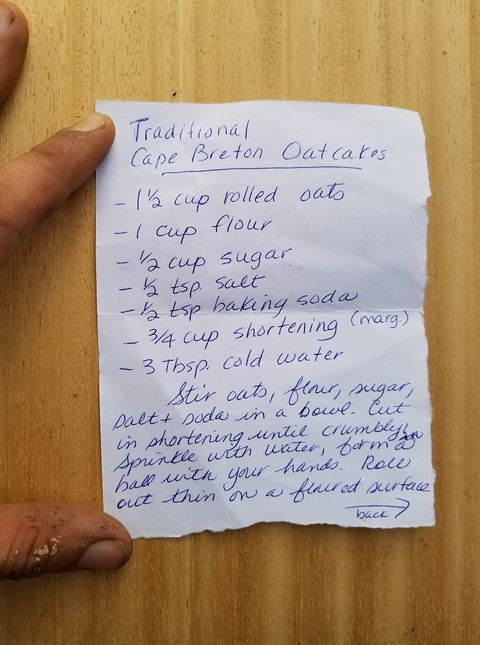 Traditional
Cape Breton Oatcakes
- 1 1/2 cup rolled oats
- 1 cup flour
- 1/2 cup sugar
- 1/2 tsp salt
- 1/2 tsp baking soda
- 3/4 cup shortening (marg.)
- 3 Tbsp. cold water
Stir oats, flour, sugar,
salt + soda in a bowl. Cut
in shortening until crumbly,
Sprinkle with water, form a
ball with your hands. Roll
out thin on a floured surface
back →